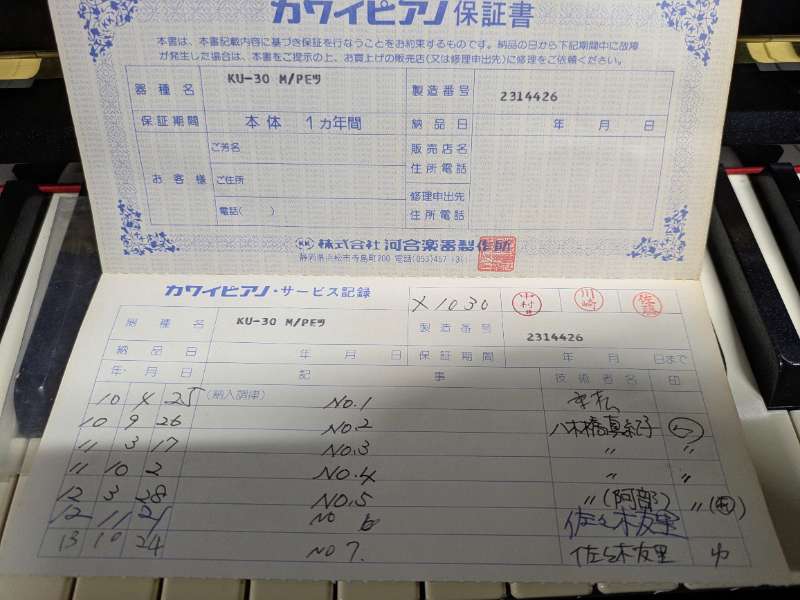 カワイピアノ 保証書
本書は、本書記載内容に基づき保証を行なうことをお約束するものです。納品の日から下記期間中に故障
が発生した場合は、本書をご提示の上、お買上げの販売店(又は修理申出先)に修理をご依頼ください。
器種名 KU-30 M/PEツ 製造番号 2314426
保証期間 本体 1ヵ年間 納品日 年 月 日
お客様 ご芳名 販売店名
住所電話
ご住所
修理申出先
電話( ) 住所電話
株式会社 河合楽器製作所
静岡県浜松市寺島町200 電話(053)457
カワイピアノ・サービス記録 X1030 中村 川崎
器種名 KU-30 M/PEツ 製造番号 2314426
納品日 年 月 日 保証期間 年 月 日まで
年・月 日 記事 技術者名 印
10 4 25 (納入調律) NO.1
10 9 26 NO.2 八木橋真紀子
11 3 17 NO.3 〃 〃
11 10 2 NO.4 〃 〃
12 3 28 NO.5 〃(阿部) 〃
12 11 21 NO 6 佐々木友里
13 10 24 NO 7. 佐々木友里